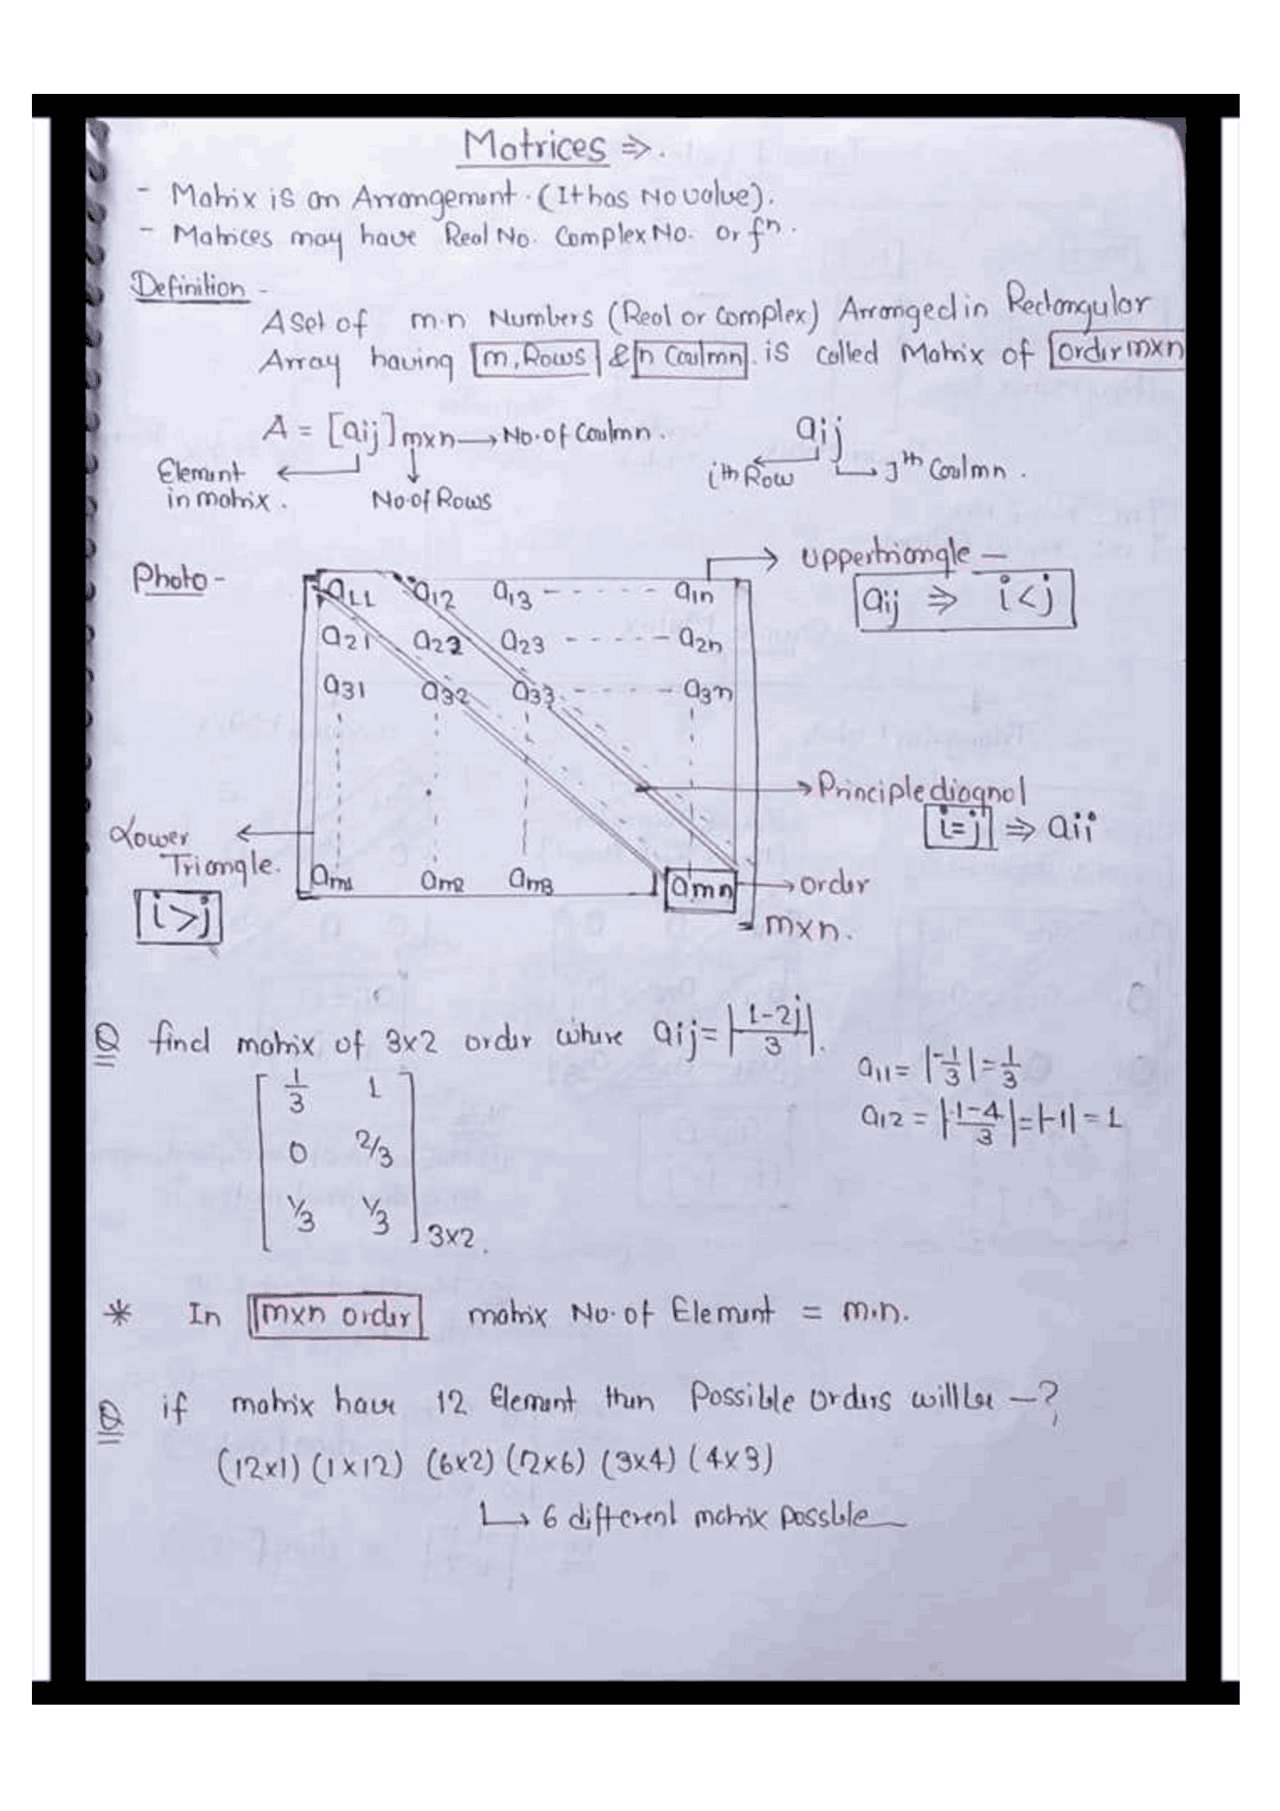 Matrices ⇒.
- Matrix is an Arrangement. (It has No value).
- Matrices may have Real No. Complex No. or fⁿ.
Definition -
A Set of m.n Numbers (Real or Complex) Arranged in Rectangular
Array having m, Rows & n Coulmn. is called Matrix of order mxn
A = [aij]mxn → No. of Coulmn.
aij
Element in matrix.
No. of Rows
ith Row
Jth Coulmn.
Photo -
Uppertriangle —
aij ⇒ i<j
a11 a12 a13 ----- a1n
a21 a22 a23 ------ a2n
a31 a32 a33 ------ a3n
Principle diagnol
i=j ⇒ aii
Lower
Triangle.
i>j
am1 am2 am3 amn → order
mxn.
Q find matrix of 3x2 order where aij = |1-2j/3|.
a11 = |-1/3| = 1/3
a12 = |1-4/3| = |-1| = 1
[1/3 1
0 2/3
1/3 1/3] 3x2.
* In mxn order matrix No. of Element = m.n.
Q if matrix have 12 Element then Possible orders will be —?
(12x1) (1x12) (6x2) (2x6) (3x4) (4x3)
↳ 6 different matrix possble